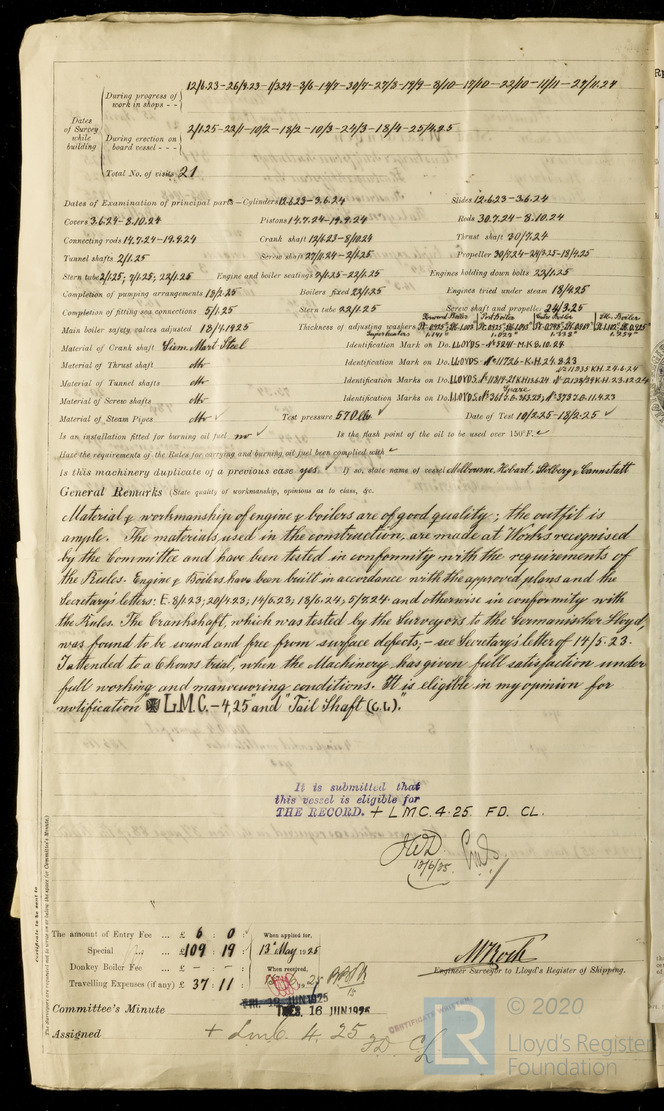 Dates of Survey while building
During progress of work in shops - - 12/6.23 - 26/9.23 - 1/3.24 - 3/6 - 14/7 - 30/7 - 27/3 - 19/9 - 8/10 - 17/10 - 22/10 - 11/11 - 27/11.24
During erection on board vessel - - - 2/1.25 - 22/1 - 10/2 - 18/2 - 10/3 - 24/3 - 18/4 - 25/4.25
Total No. of visits 21
Dates of Examination of principal parts—Cylinders 12.6.23-3.6.24 Slides 12.6.23-3.6.24
Covers 3.6.24-8.10.24 Pistons 14.7.24-19.9.24 Rods 30.7.24-8.10.24
Connecting rods 14.7.24-19.9.24 Crank shaft 12/6.23-8/10.24 Thrust shaft 30/7.24
Tunnel shafts 2/1.25 Screw shaft 27/11.24-2/1.25 Propeller 30/7.24-24/3.25-18/4.25
Stern tube 2/1.25; 7/1.25; 22/1.25 Engine and boiler seatings 7/1.25-22/1.25 Engines holding down bolts 22/1.25
Completion of pumping arrangements 18/2.25 Boilers fixed 22/1.25 Engines tried under steam 18/4.25
Completion of fitting sea connections 5/1.25 Stern tube 22/1.25 Screw shaft and propeller 24/3.25
Main boiler safety valves adjusted 18/4.1925 Thickness of adjusting washers
Material of Crank shaft Siem. Mart. Steel Identification Mark on Do. LLOYDS
Material of Thrust shaft do Identification Mark on Do. LLOYDS No 11726-K.H.
Material of Tunnel shafts do Identification Marks on Do. LLOYDS
Material of Screw shafts do Identification Marks on Do. LLOYDS
Spare
Material of Steam Pipes do ✓ Test pressure 570 lb ✓ Date of Test 10/2.25-18/2.25 ✓
Is an installation fitted for burning oil fuel no ✓ Is the flash point of the oil to be used over 150°F.
Have the requirements of the Rules for carrying and burning oil fuel been complied with
Is this machinery duplicate of a previous case yes ✓ If so, state name of vessel Melbourne, Hobart, Stolberg & Cannstatt
General Remarks (State quality of workmanship, opinions as to class, &c.
Material & workmanship of engine & boilers are of good quality; the outfit is
ample. The materials used in the construction, are made at Works recognised
by the Committee and have been tested in conformity with the requirements of
the Rules. Engine & Boilers have been built in accordance with the approved plans and the
Secretary's letters: E. 8/1.23; 20/4.23; 14/5.23; 18/6.24; 5/7.24 and otherwise in conformity with
the Rules. The Crankshaft, which was tested by the Surveyors to the Germanischer Lloyd,
was found to be sound and free from surface defects, - see Secretary's letter of 14/5.23.
I attended to a 6 hours trial, when the Machinery has given full satisfaction under
full working and manoeuvring conditions. It is eligible in my opinion for
notification ✠ L.M.C. - 4,25 and "Tail Shaft (C.L).
It is submitted that
this vessel is eligible for
THE RECORD. + LMC. 4.25. FD. CL.
Certificate to be sent to
The amount of Entry Fee ... £ 6 : 0 : When applied for,
Special ... £ 109 : 19 : 13th May 1925
Donkey Boiler Fee ... £ - : - : When received,
Travelling Expenses (if any) £ 37 : 11 :
Engineer Surveyor to Lloyd's Register of Shipping.
Committee's Minute FRI. 12 JUN 1925
TUES. 16 JUN 1925
Assigned + LMC. 4. 25 FD CL
CERTIFICATE WRITTEN
© 2020
LR
Lloyd's Register
Foundation